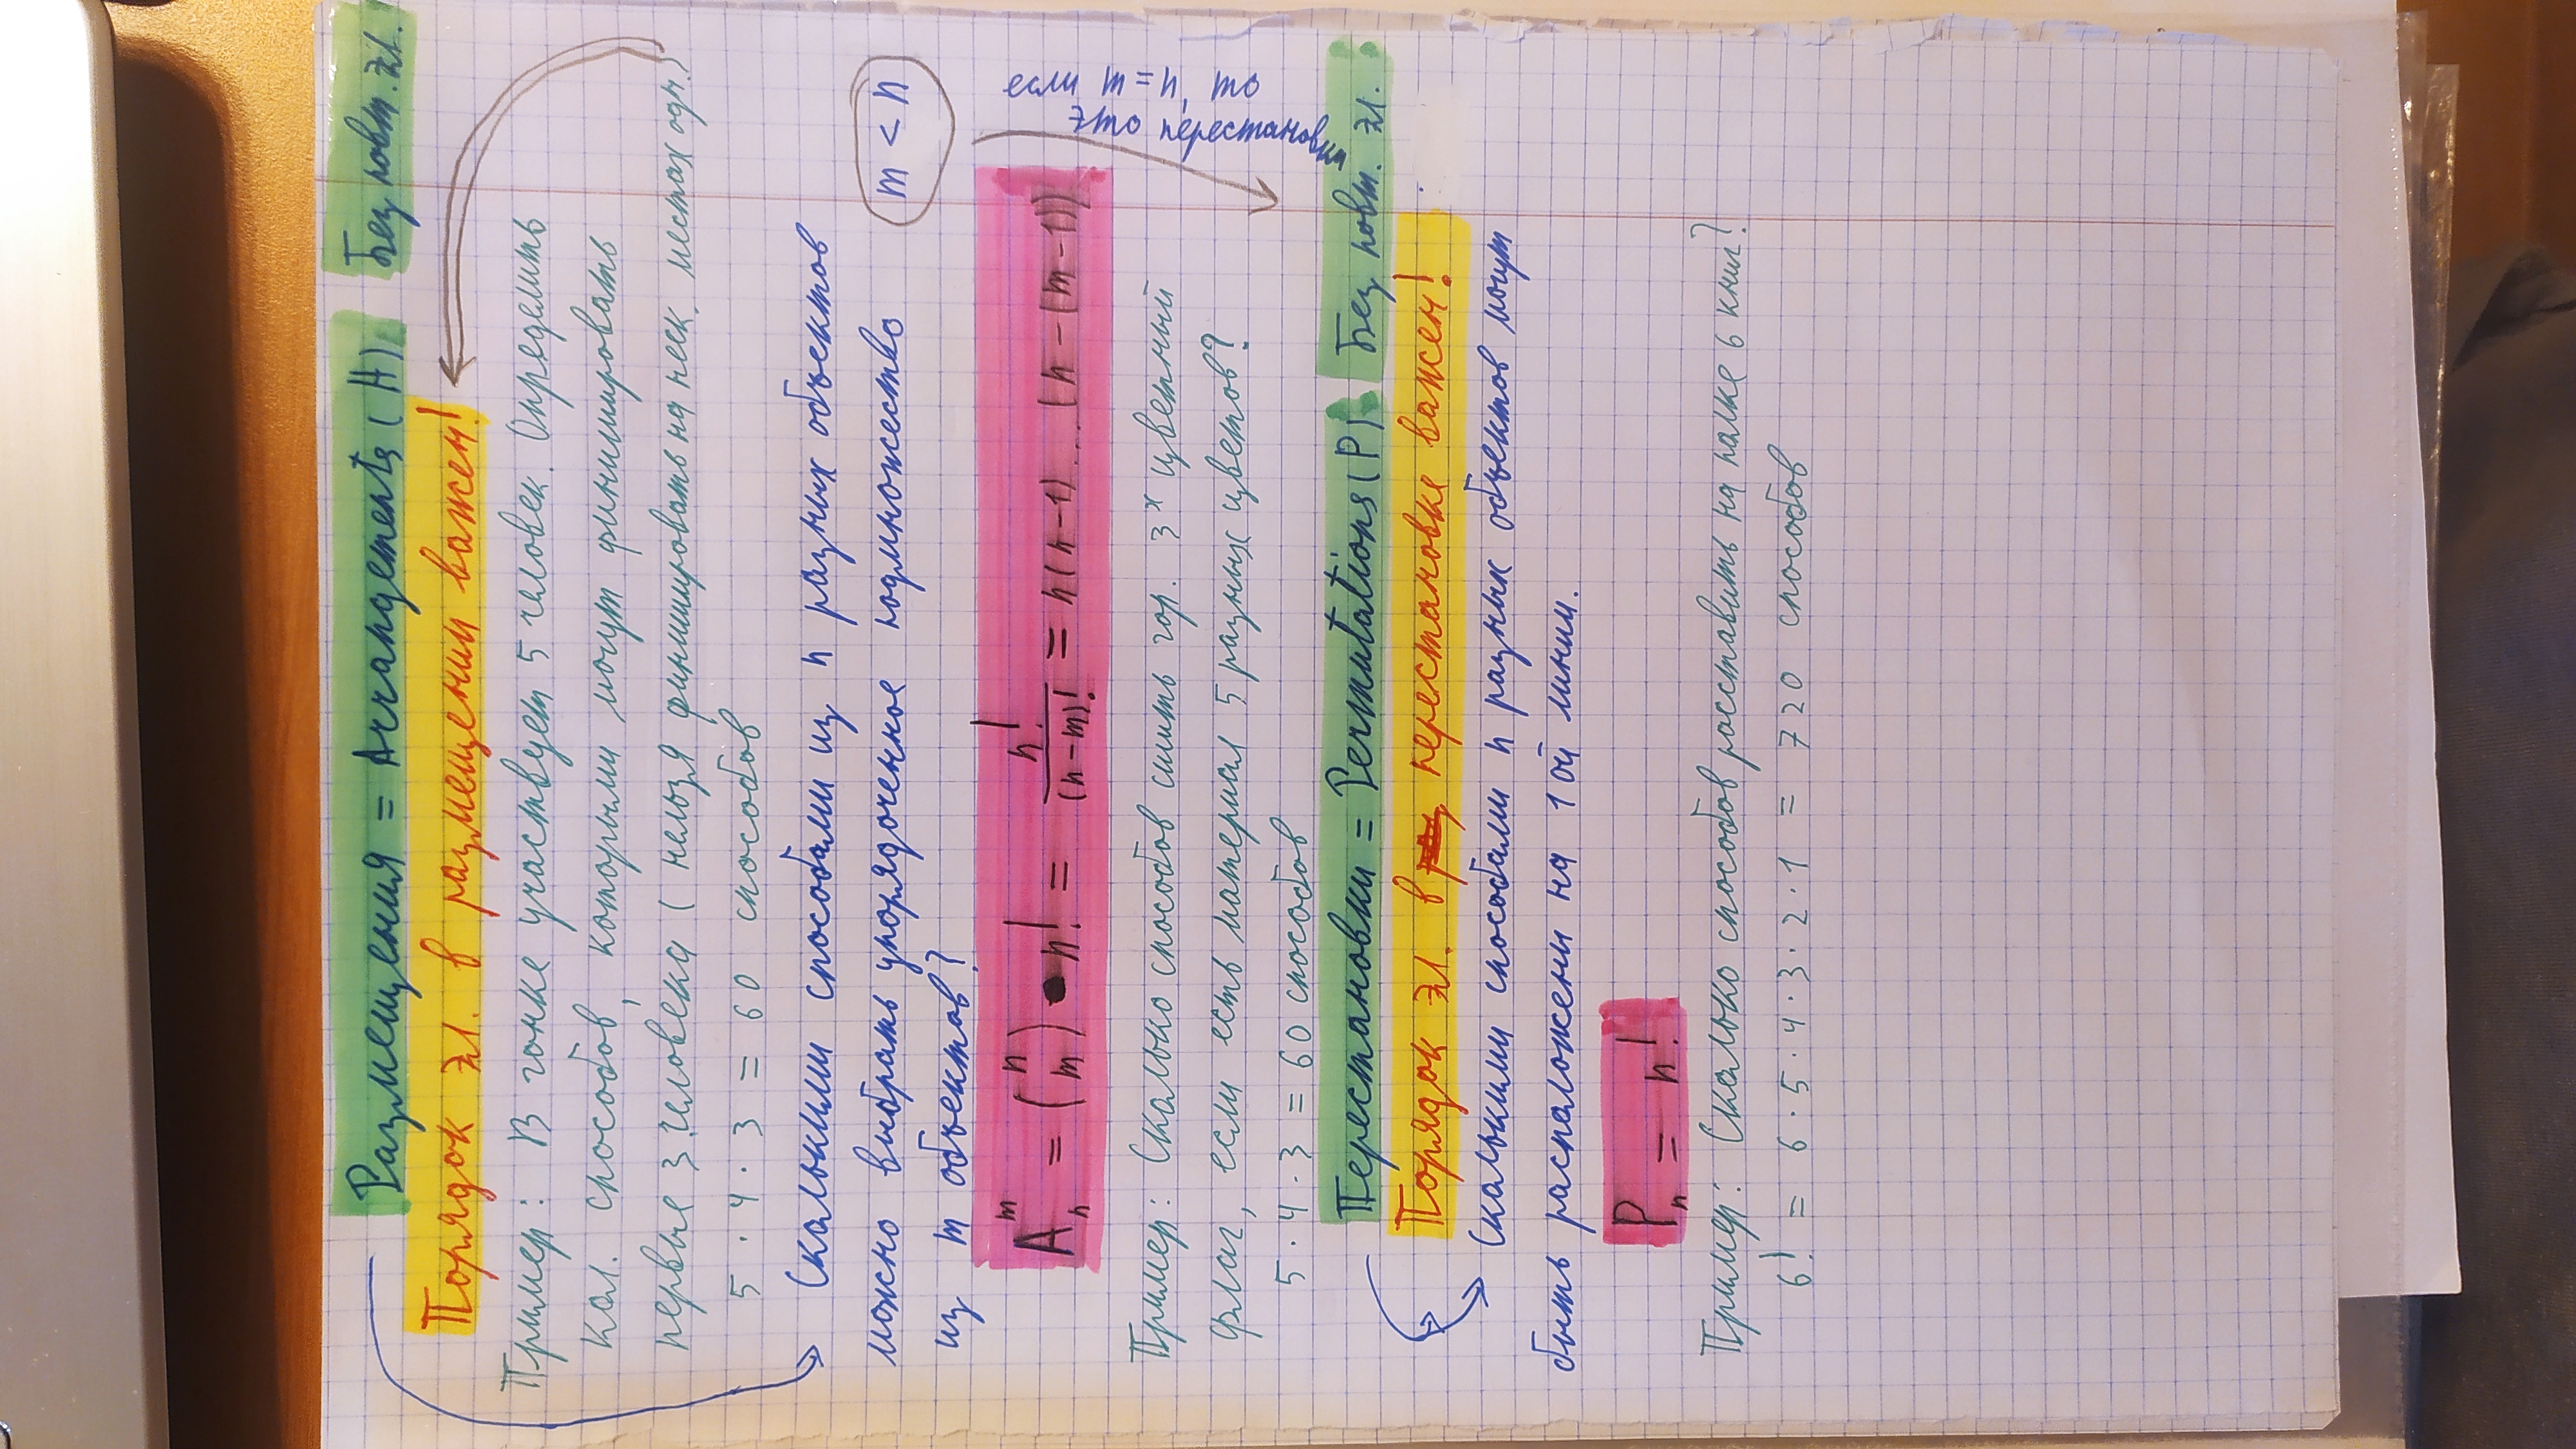 Размещения = Arrangements (A) Без повт. эл.
Порядок эл. в размещении важен!
Пример: В гонке участвует 5 человек. Определить
кол. способов, которыми могут финишировать
первые 3 человека ( нельзя финишировать на неск. местах одн.)
5 · 4 · 3 = 60 способов
Сколькими способами из n разных объектов
можно выбрать упорядоченное подмножество
m < n
из m объектов?
A_n^m = (n m) · n! = n!/(n-m)! = n(n-1)...(n-(m-1))
если m = n, то
это перестановки
Пример: Сколько способов сшить гор. 3х цветный
флаг, если есть материал 5 разных цветов?
5 · 4 · 3 = 60 способов
Перестановки = Permutations (P) Без повт. эл.
Порядок эл. в перестановке важен!
Сколькими способами n разных объектов могут
быть расположены на 1 ой линии.
P_n = n!
Пример: Сколько способов расставить на полке 6 книг?
6! = 6 · 5 · 4 · 3 · 2 · 1 = 720 способов